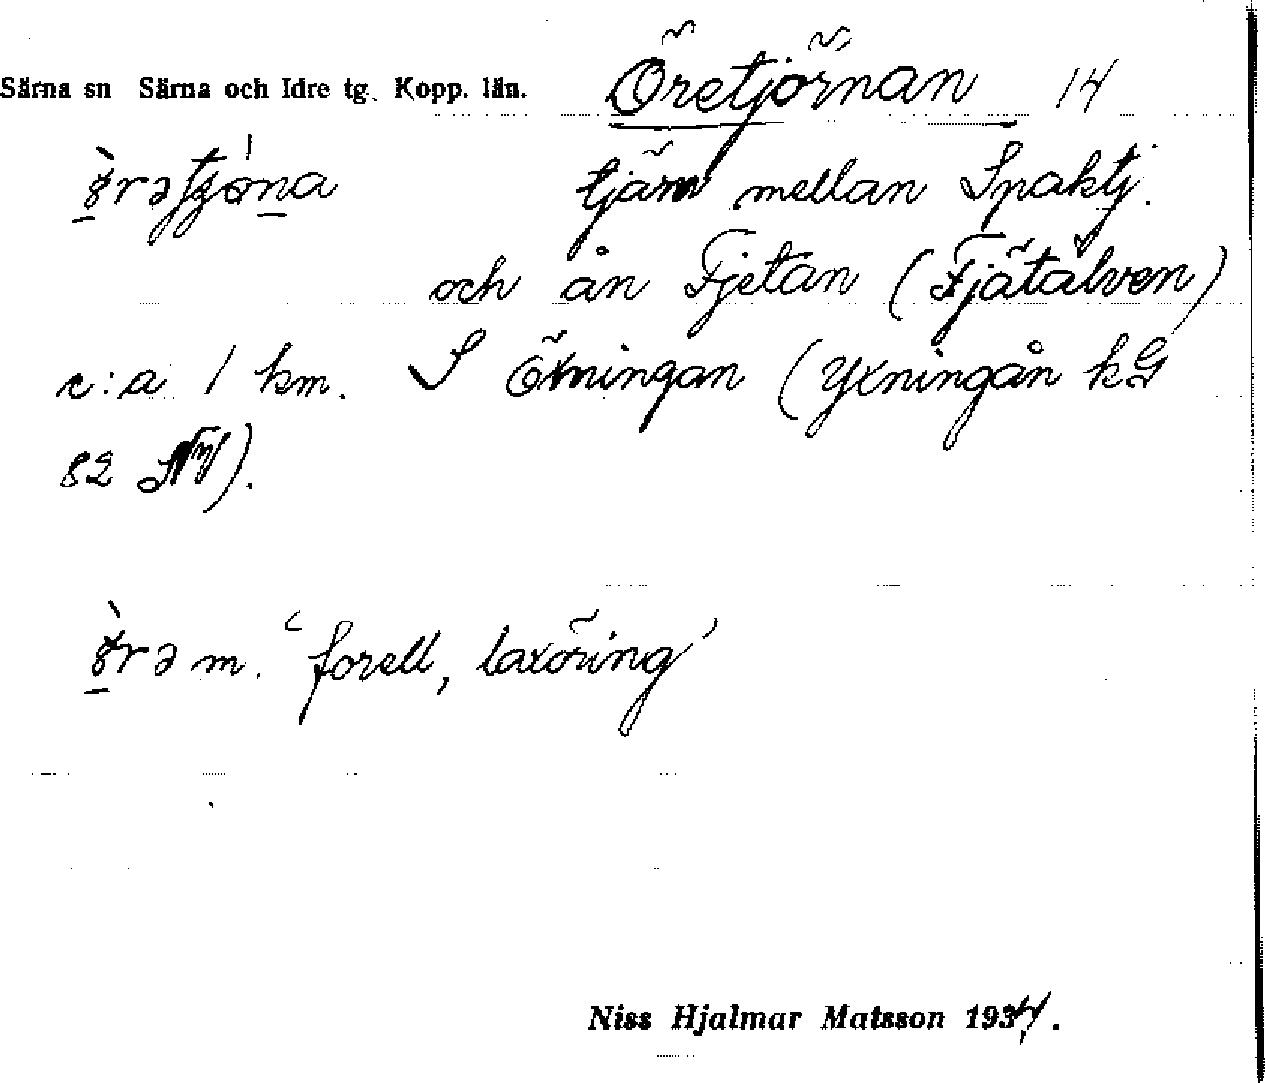 Särna sn Särna och Idre tg. Kopp. län. Öretjörnan 14
tjärn mellan Spaktj.
och ån Fjetan (Fjätälven)
c:a 1 km. S Öxningan (Yxningån kG
82 NV).
m. 'forell, laxöring'
Niss Hjalmar Matsson 1934.